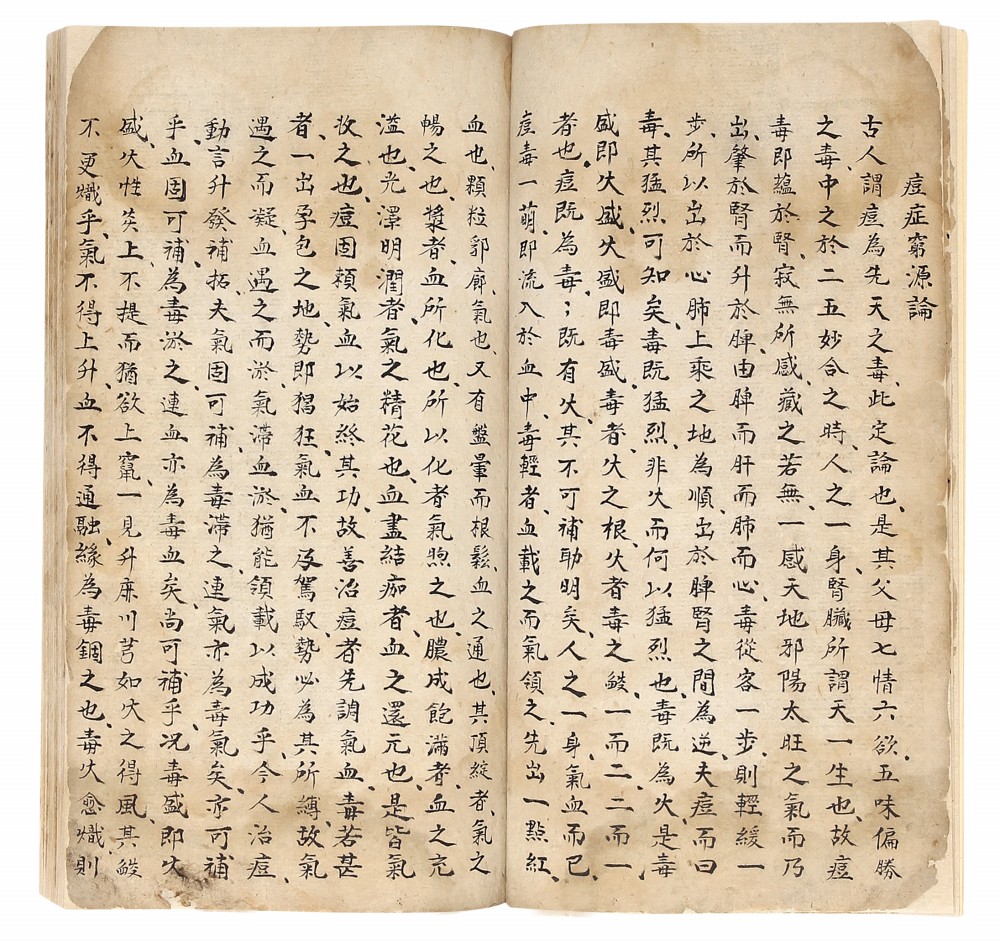 痘症窮源論
古人謂痘為先天之毒、此定論也、是其父母七情六欲、五味偏勝
之毒、中之於二五妙合之時、人之一身、腎臟所謂天一生也、故痘
毒即蘊於腎、寂無所感、藏之若無、一感天地邪陽太旺之氣而乃
出、肇於腎而升於脾、由脾而肝而肺而心、毒從容一步、則輕緩一
步、所以出於心肺上乘之地為順、出於脾腎之間為逆、夫痘而曰
毒、其猛烈可知矣、毒既猛烈、非火而何以猛烈也、毒既為火、是毒
盛即火盛、火盛即毒盛、毒者、火之根、火者毒之𦦨、一而二、二而一
者也、痘既為毒；既有火、其不可補助明矣、人之一身、氣血而已、
痘毒一萌、即流入於血中、毒輕者、血載之而氣領之、先出一點紅、
血也、顆粒郛廓、氣也、又有盤暈而根鬆、血之通也、其頂綻者、氣之
暢之也、漿者、血所化也、所以化者氣煦之也、膿成飽滿者、血之充
溢也、光澤明潤者、氣之精花也、血盡結痂者、血之還元也、是皆氣
收之也、痘固賴氣血以始終其功、故善治痘者、先調氣血、毒若甚
者、一出孕包之地、勢即猖狂、氣血不及駕馭、勢必為其所縛、故氣
遇之而凝、血遇之而淤、氣滯血淤、猶能領載以成功乎、今人治痘、
動言升發補拓、夫氣固可補、為毒滯之、連氣亦為毒氣矣、亦可補
乎、血固可補、為毒淤之、連血亦為毒血矣、尚可補乎、況毒盛即火
盛、火性炎上、不提而猶欲上竄、一見升麻川芎、如火之得風、其𦦨
不更熾乎、氣不得上升、血不得通融、緣為毒錮之也、毒火愈熾、則